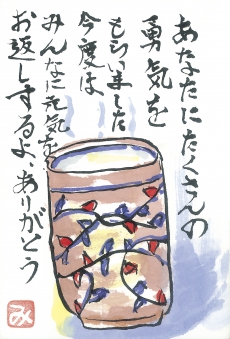 あなたにたくさんの
勇気を
もらいました
今度は
みんなに元気を
お返しするよ、ありがとう
み